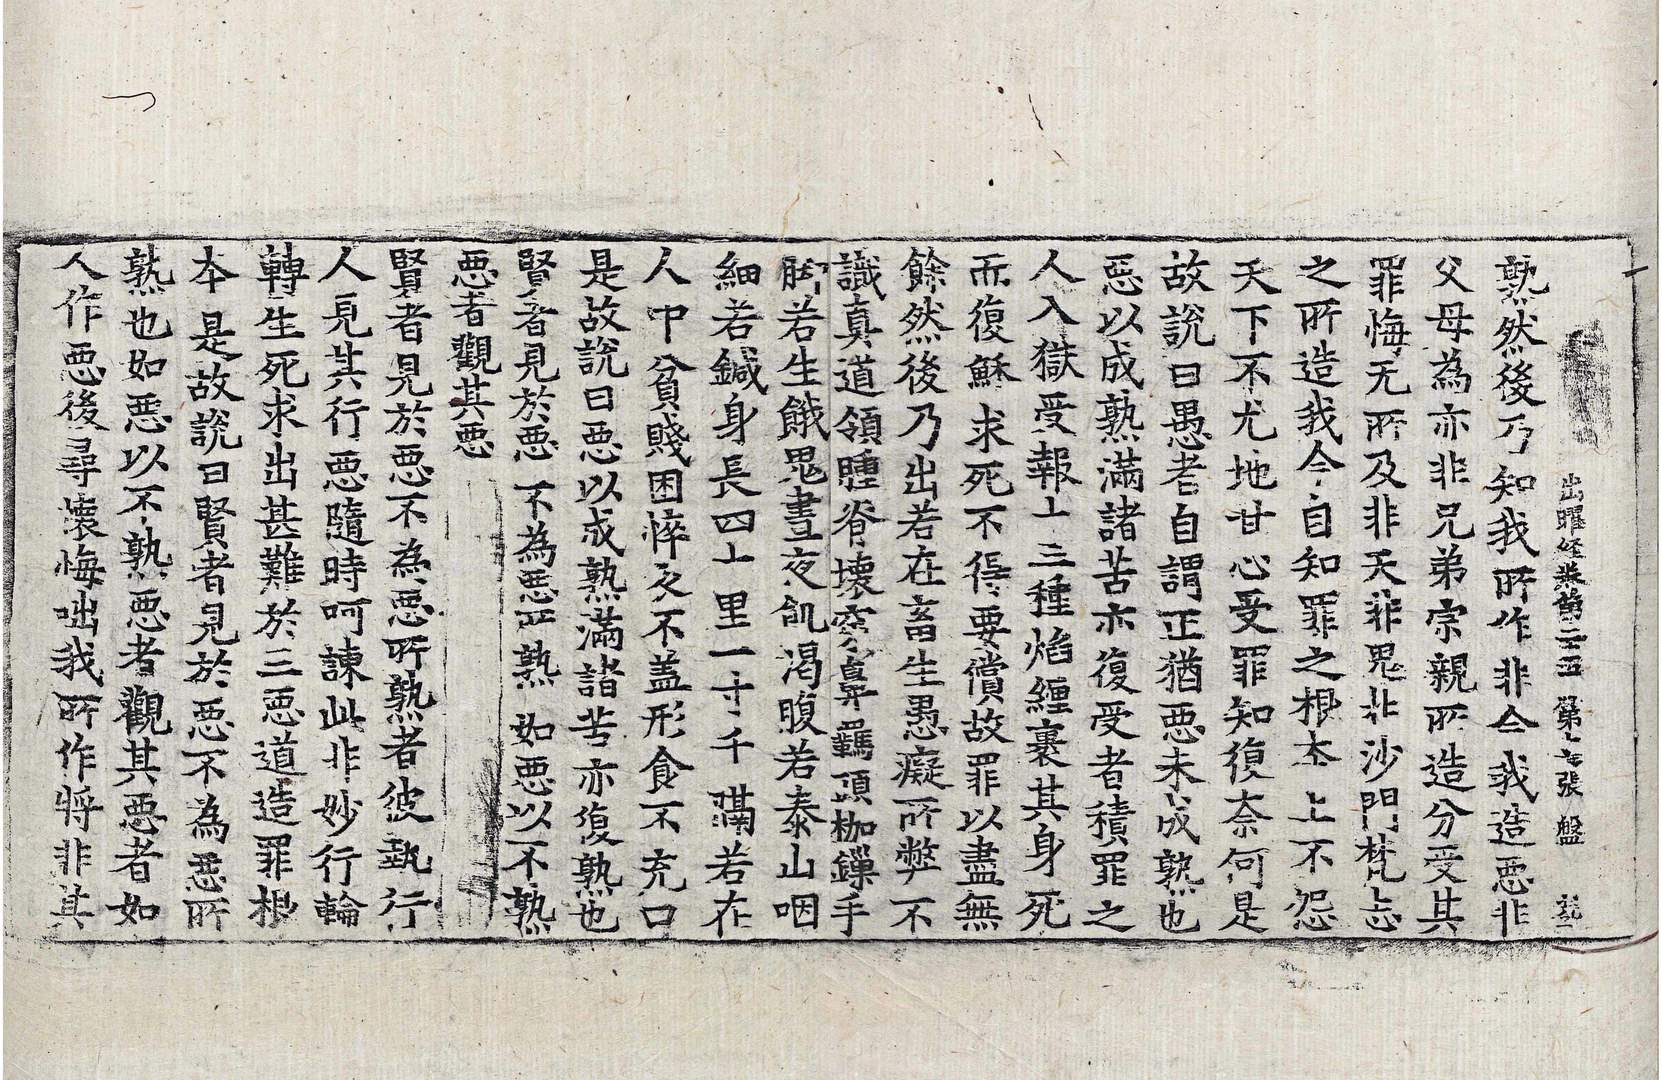 出曜經卷第二十五 第七張 盤
熟然後乃知我所作非今我造惡非
父母為亦非兄弟宗親所造分受其
罪悔无所及非天非鬼非沙門梵志
之所造我今自知罪之根本上不怨
天下不尤地甘心受罪知復奈何是
故說曰愚者自謂正猶惡未成熟也
惡以成熟滿諸苦亦復受者積罪之
人入獄受報十三種焰纏裹其身死
而復穌求死不得要償故罪以盡無
餘然後乃出若在畜生愚癡所弊不
識真道領腫脊壞穿鼻羈頭枷鏁手
脚若生餓鬼晝夜飢渴腹若泰山咽
細若鍼身長四十里一寸千隔若在
人中貧賤困悴衣不盖形食不充口
是故說曰惡以成熟滿諸苦亦復熟也
賢者見於惡 不為惡所熟 如惡以不熟
惡者觀其惡
賢者見於惡不為惡所熟者彼執行
人見其行惡隨時呵諫此非妙行輪
轉生死求出甚難於三惡道造罪根
本是故說曰賢者見於惡不為惡所
熟也如惡以不熟惡者觀其惡者如
人作惡後尋壞悔咄我所作將非其